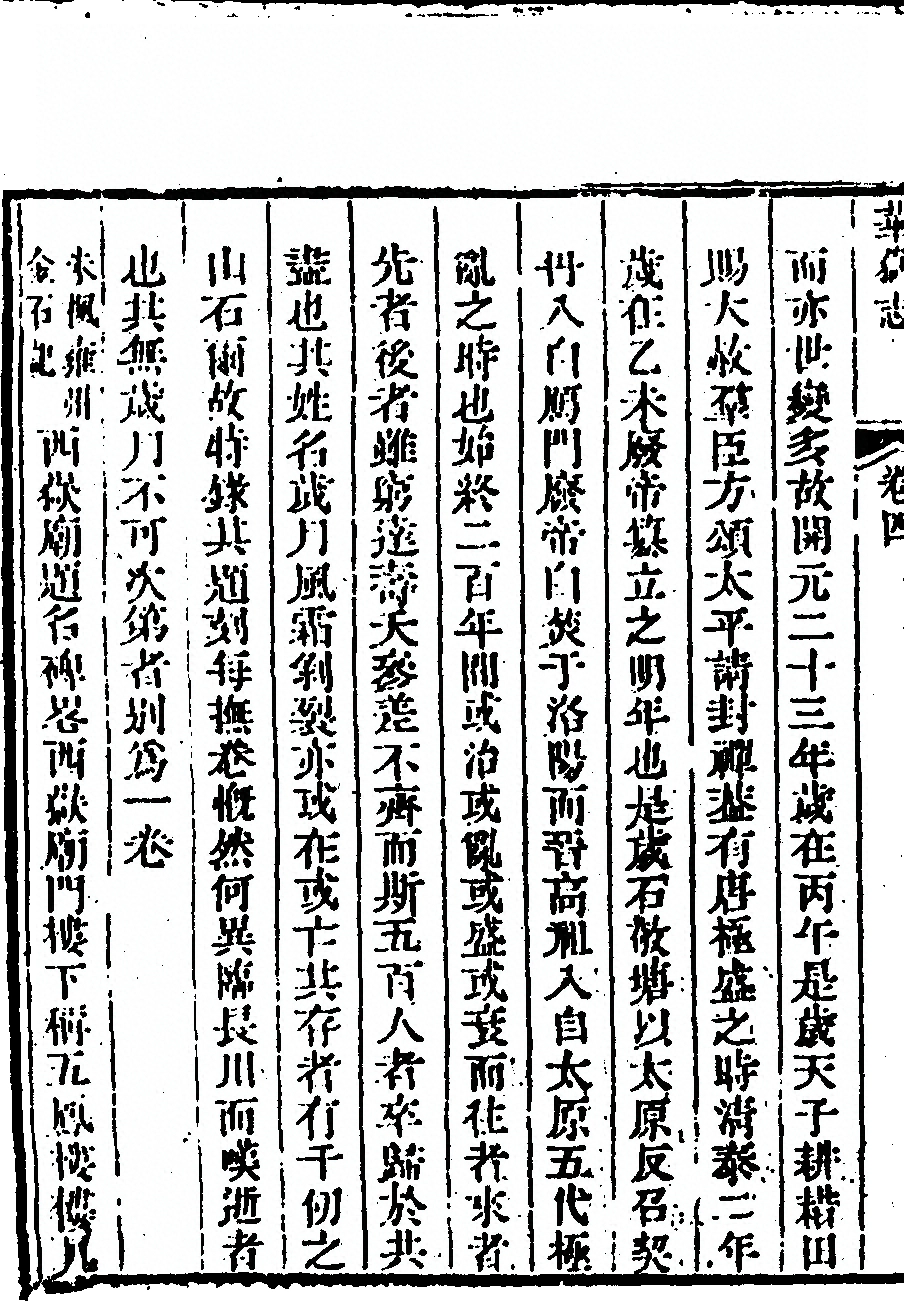 華嶽志
卷四
而亦世變多故開元二十三年歲在丙午是歲天子耕耤田
賜大赦羣臣方頌太平請封禪蓋有唐極盛之時清泰二年
歲在乙未廢帝篡立之明年也是歲石敬塘以太原反召契
丹入自鴈門廢帝自焚于洛陽而晉高祖入自太原五代極
亂之時也始終二百年間或治或亂或盛或衰而往者來者
先者後者雖窮達壽夭參差不齊而斯五百人者卒歸於共
盡也其姓名歲月風霜剝裂亦或在或亡其存者有千仞之
山石爾故特錄其題刻每撫卷慨然何異臨長川而嘆逝者
也其無歲月不可次第者別爲一卷
朱楓雍州
金石記
西嶽廟題名碑嵓西嶽廟門樓下稱五鳳樓樓凡